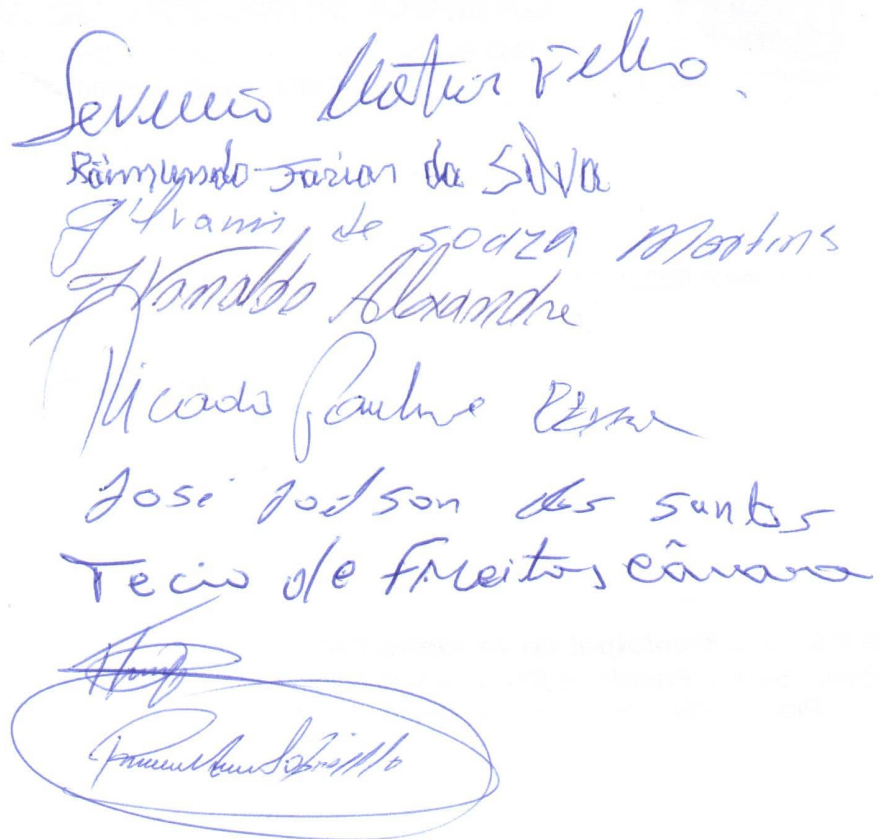 Severino Matias Filho.
Raimundo Farias da Silva
Gilvanin de souza Martins
Ivanaldo Alexandre
Ricado Paulino
José Joelson dos santos
Tecio de Freeitas câmara
Sobrinho